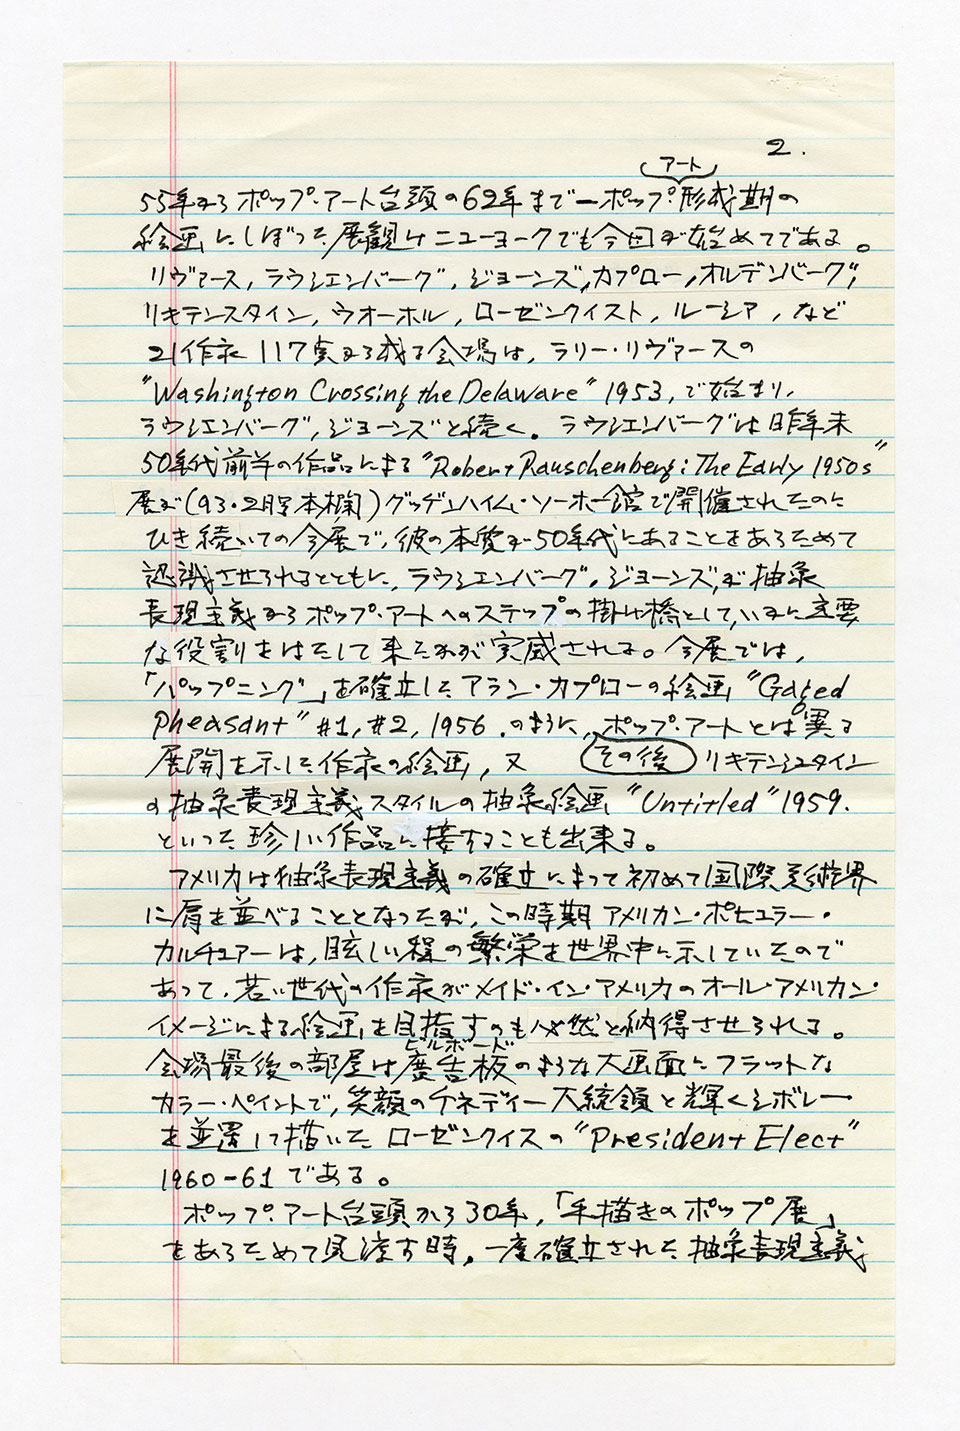 2.
アート
55年からポップ・アート台頭の62年まで―ポップ形成期の
絵画にしぼった展観はニューヨークでも今回が始めてである。
リヴァース, ラウシェンバーグ, ジョーンズ, カプロー, オルデンバーグ,
リキテンスタイン, ウオーホル, ローゼンクイスト, ルーシア, など
21作家117点から成る会場は, ラリー・リヴァースの
"Washington Crossing the Delaware" 1953, で始まり,
ラウシェンバーグ, ジョーンズと続く。ラウシェンバーグは昨年末
50年代前半の作品による"Robert Rauschenberg: The Early 1950s"
展が(93・2月号本欄)グッゲンハイム・ソーホー館で開催されたのに
ひき続いての今展で, 彼の本質が50年代にあることをあらためて
認識させられるとともに, ラウシェンバーグ, ジョーンズ, が抽象
表現主義からポップ・アートへのステップの掛け橋として, いかに主要
な役割をはたして来たかが実感される。今展では,
「ハップニング」を確立したアラン・カプローの絵画 "Caged
Pheasant" #1, #2, 1956. のように, ポップ・アートとは異る
展開を示した作家の絵画, 又 その後 リキテンシュタイン
の抽象表現主義スタイルの抽象絵画 "Untitled" 1959.
といった珍しい作品に接することも出来る。
アメリカは抽象表現主義の確立によって初めて国際美術界
に肩を並べることとなったが, この時期アメリカン・ポピュラー・
カルチュアーは, 眩しい程の繁栄を世界中に示していたので
あって, 若い世代の作家がメイド・イン・アメリカのオール・アメリカン・
イメージによる絵画を目指すのも必然と納得させられる。
ビルボード
会場最後の部屋は廣告板のような大画面にフラットな
カラー・ペイントで, 笑顔のケネディー大統領と輝くシボレー
を並置して描いたローゼンクイスの "President Elect"
1960-61である。
ポップ・アート台頭から30年, 「手描きのポップ展」
をあらためて見渡す時, 一度確立された抽象表現主義